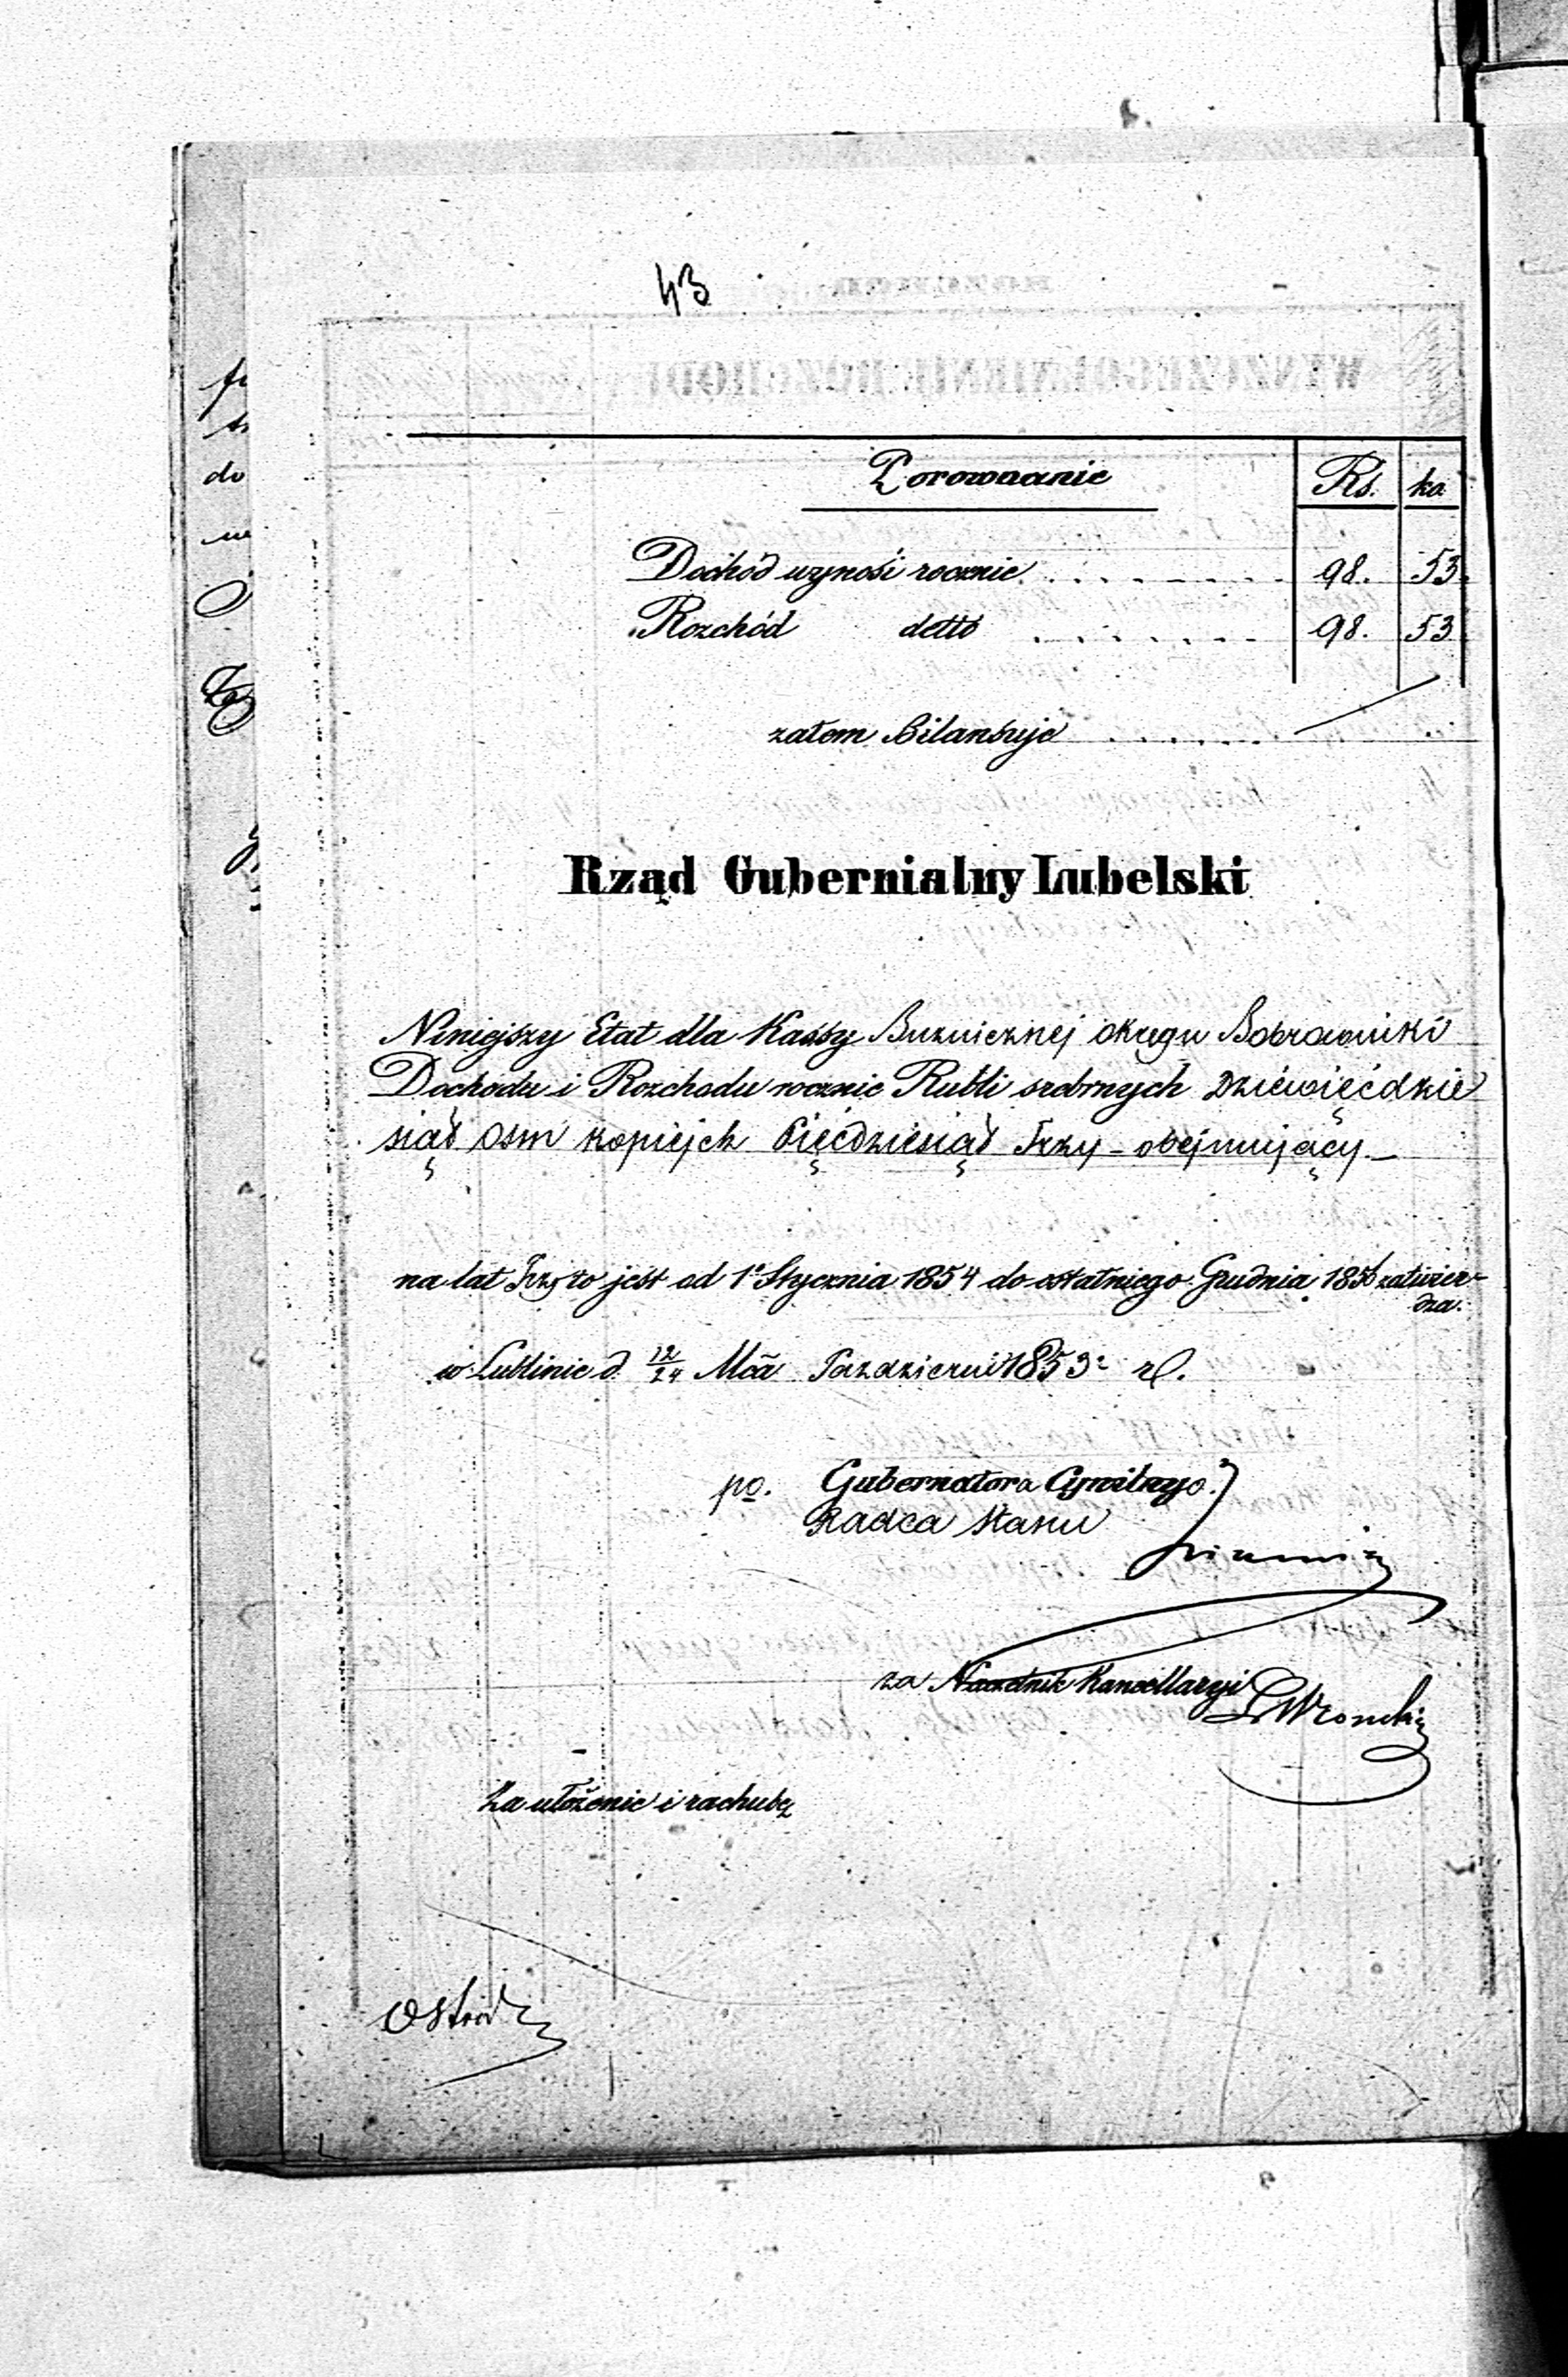 43
Porownanie Rs. ko
Dochód wynosi rocznie 98. 53.
Rozchód detto 98. 53
zatem Bilansuje
Rząd Gubernialny Lubelski
Niniejszy Etat dla Kassy Buznicznej okręgu Bobrowniki
Dochodu i Rozchodu rocznie Rubli srebrnych Dziewięćdzie
siąt Osm kopiejek Pięćdziesiąt Trzy – obejmujący –
na lat Trzy to jest od 1º Stycznia 1854 do ostatniego Grudnia 1856 zatwier-
dza.
w Lublinie d. 12/24 Mca Pazdzierni 1853 r.
po. Gubernatora Cywilnego
Radca Stanu
za Naczelnik Kancellaryi Wronski
Za ułożenie i rachubę